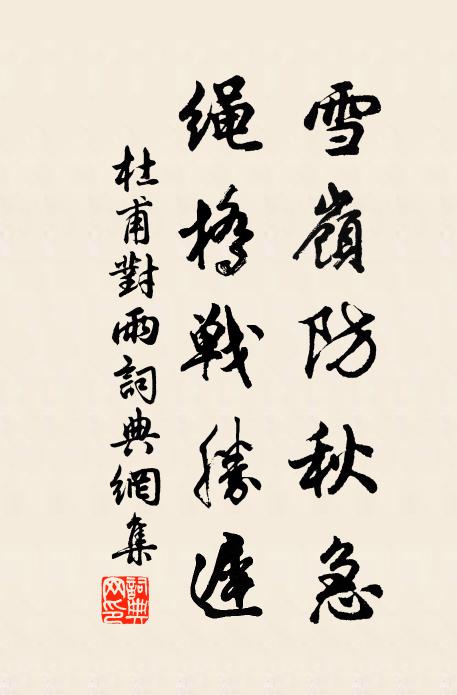 雪嶺防秋急
绳橋戰勝遲
杜甫對雨詞典網集
詞典網印